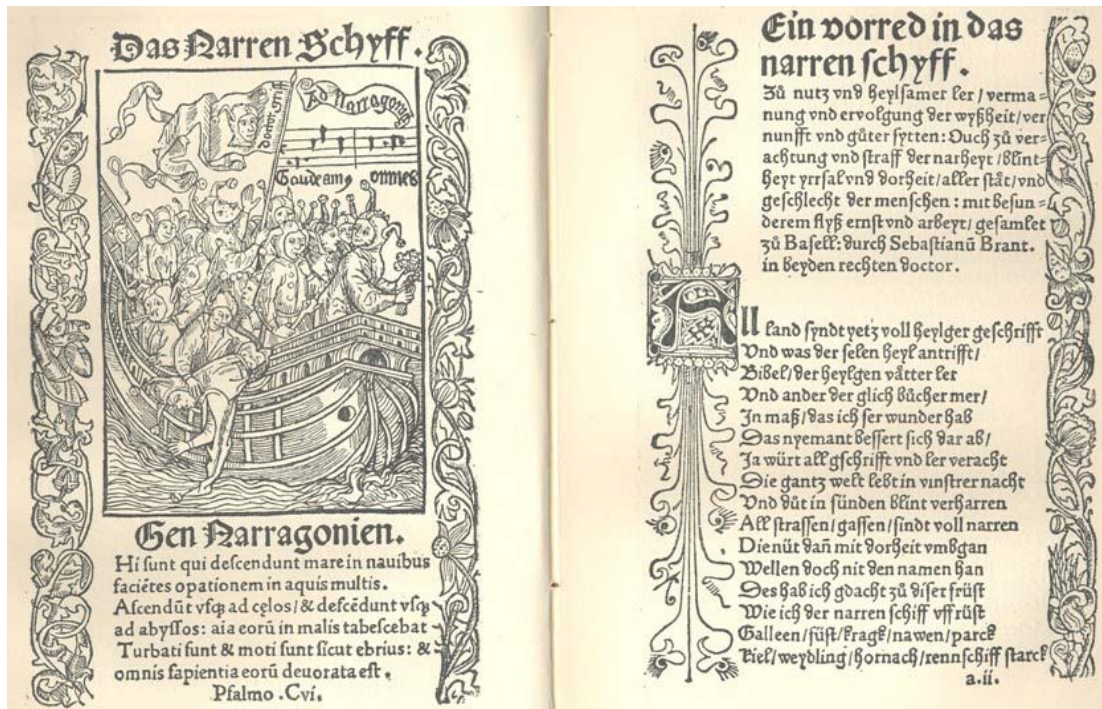 Das Narren Schyff.
Ad Narragoniā
doctor griff
Gaudeam⁹ omnes
Gen Narragonien.
Hi sunt qui descendunt mare in nauibus
faciētes opationem in aquis multis.
Ascendūt vsqꝫ ad cęlos / & descēdunt vsqꝫ
ad abyssos: aia eorū in malis tabescebat
Turbati sunt & moti sunt sicut ebrius: &
omnis sapientia eorū deuorata est.
Psalmo .Cvi.
Ein vorred in das
narren schyff.
Zů nutz vnd heylsamer ler / verma=
nung vnd ervolgung der wyßheit / ver
nunfft vnd gůter sytten: Ouch zů ver=
achtung vnd straff der narheyt / blint=
heyt yrrsal vnd dorheit / aller stǎt / vnd
geschlecht der menschen: mit besun=
derem flyß ernst vnd arbeyt / gesamlet
zů Basell: durch Sebastianū Brant.
in beyden rechten doctor.
All land syndt yetz voll heylger geschrifft
Vnd was der selen heyl antrifft /
Bibel / der heylgen vǎtter ler
Vnd ander der glich bůcher mer /
In maß / das ich ser wunder hab
Das nyemant bessert sich dar ab /
Ja würt all gschrifft vnd ler veracht
Die gantz welt lebt in vinstrer nacht
Vnd důt in sünden blint verharren
All strassen / gassen / sindt voll narren
Die nüt dañ mit dorheit vmbgan
Wellen doch nit den namen han
Des hab ich gdacht zů diser früst
Wie ich der narren schiff vff rüst
Galleen / füst / kragk / nawen / parck
Kiel / weydling / hornach / rennschiff starck
a.ii.